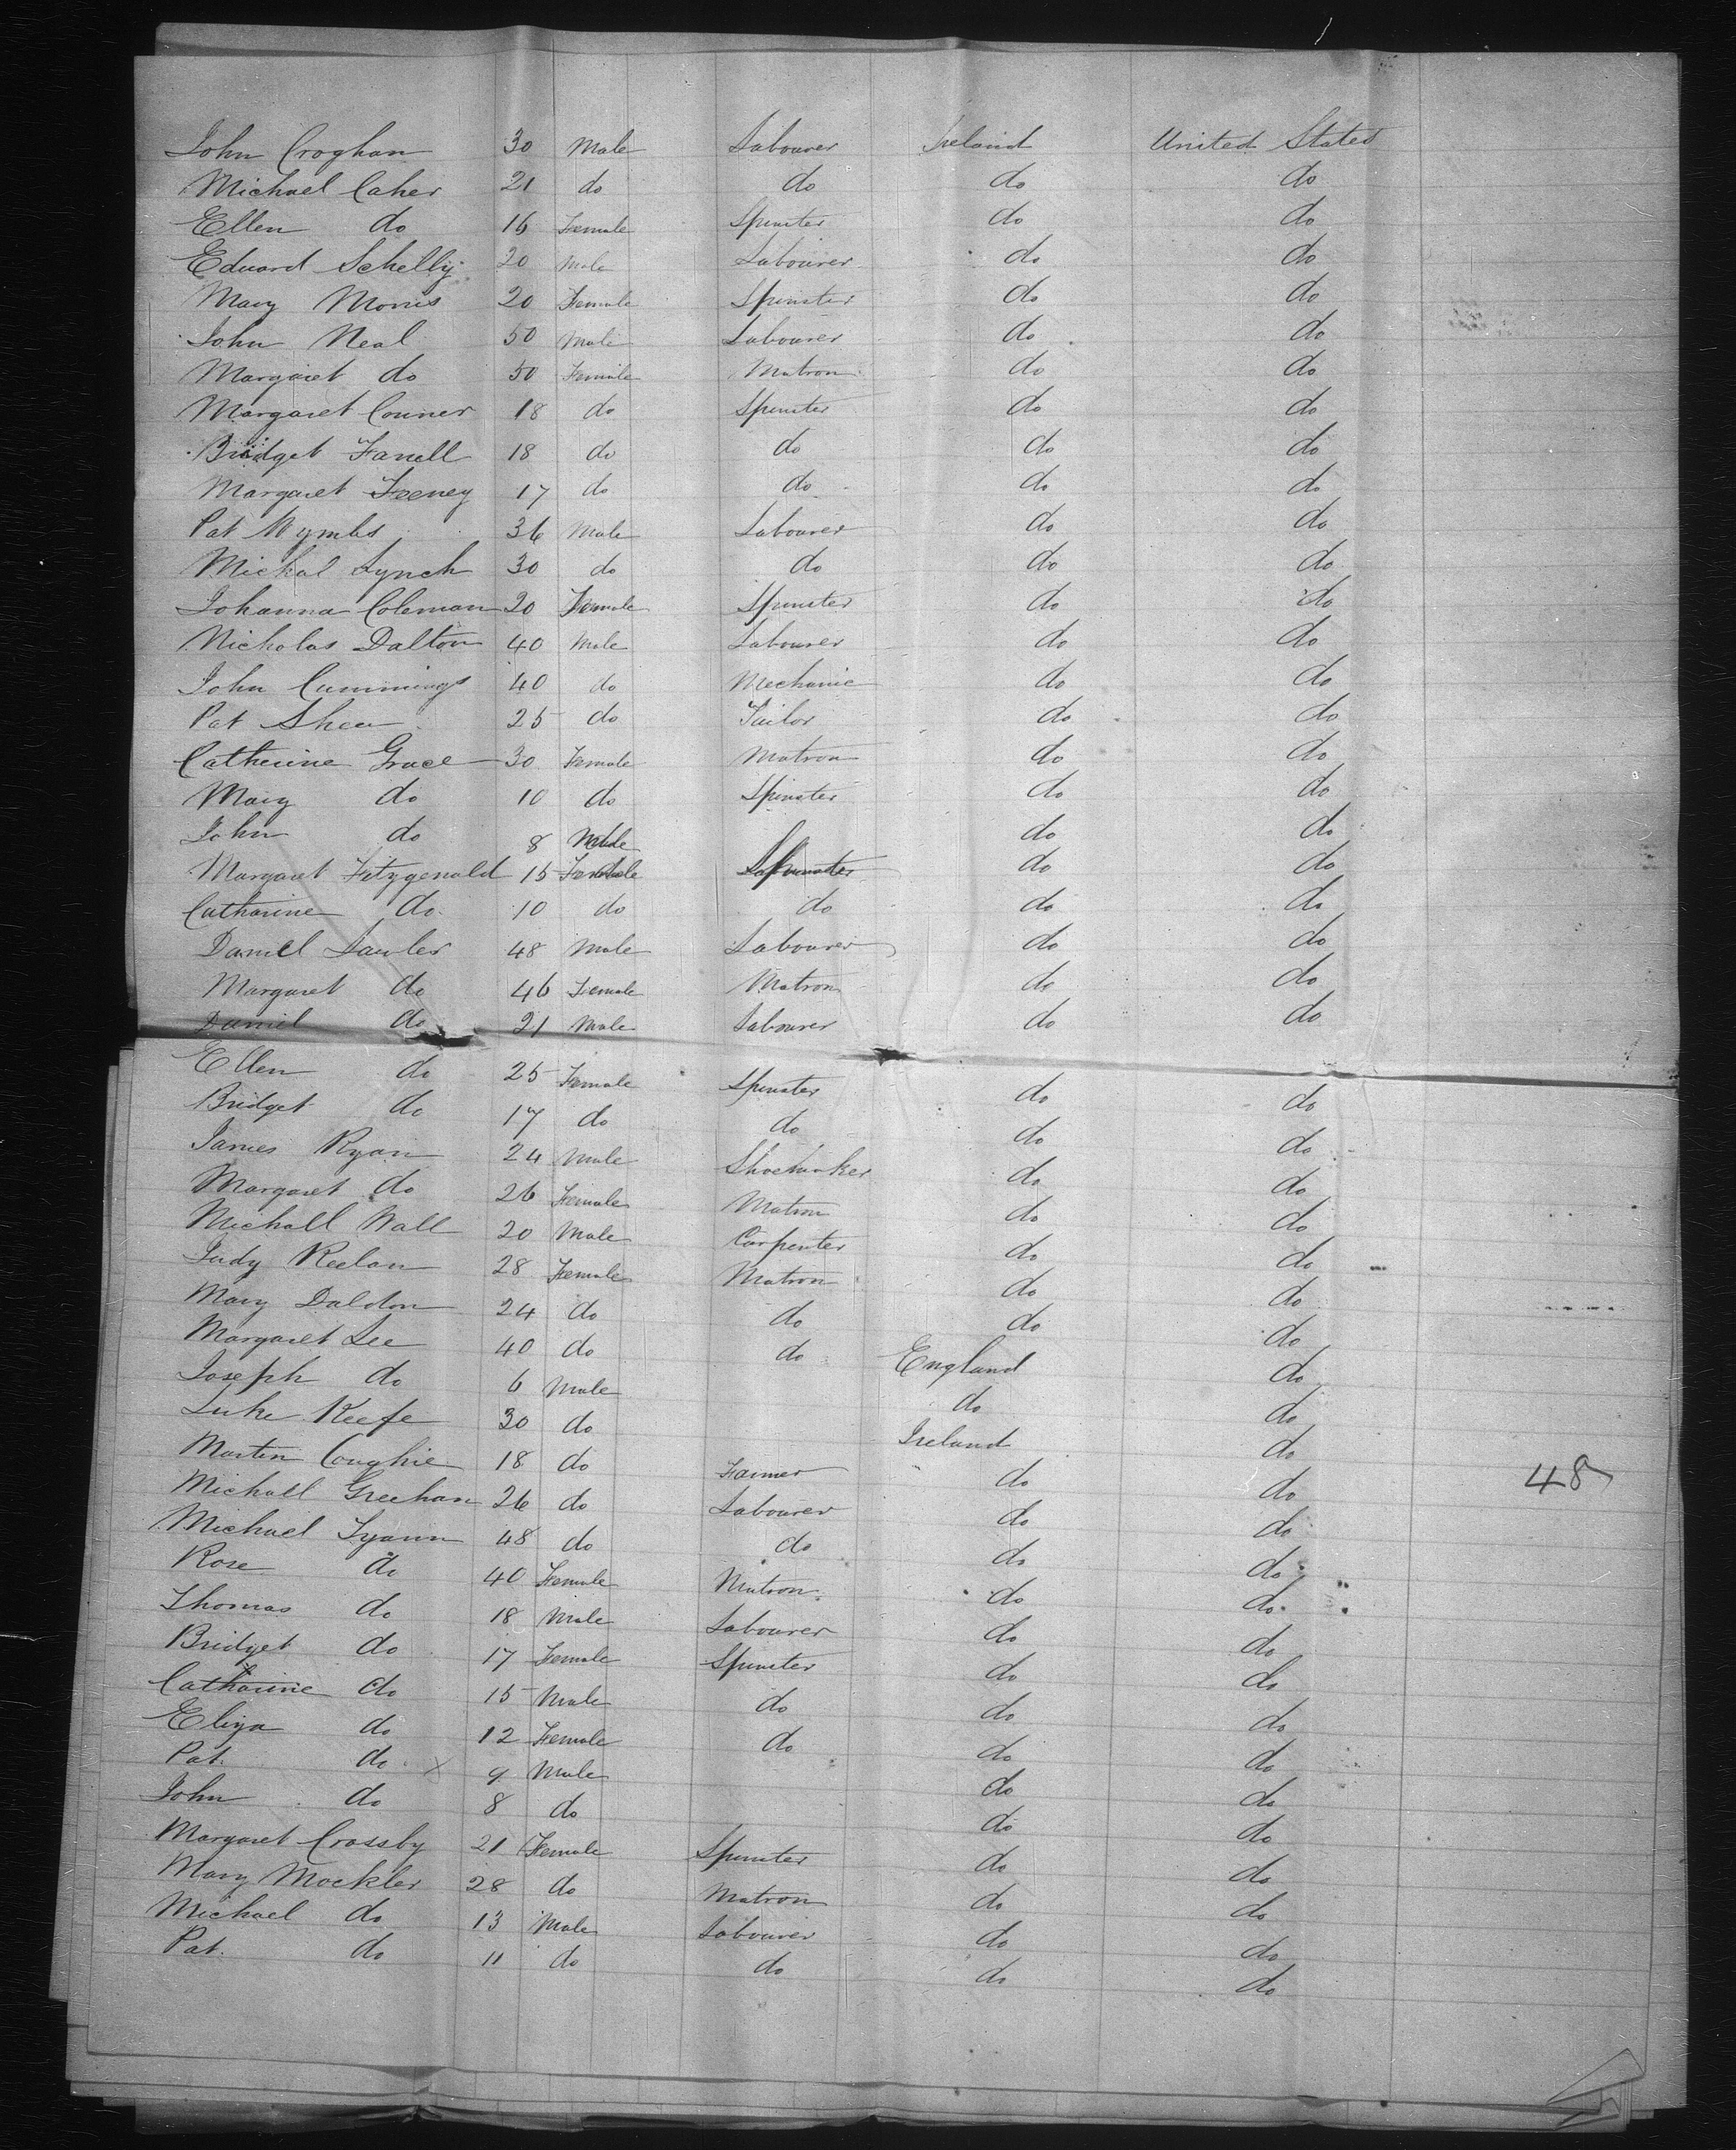 John Croghan 30 Male Labourer Ireland United States
Michael Caher 21 do do do do
Ellen do 16 Female Spinster do do
Edward Schelly 20 Male Labourer do do
Mary Morris 20 Female Spinster do do
John Neal 50 Male Labourer do do
Margaret do 50 Female Matron do do
Margaret Conner 18 do Spinster do do
Bridget Farrell 18 do do do do
Margaret Feeney 17 do do do do
Pat Wymbs 36 Male Labourer do do
Michal Lynch 30 do do do do
Johanna Coleman 20 Female Spinster do do
Nicholas Dalton 40 Male Labourer do do
John Cummings 40 do Mechanic do do
Pat Shea 25 do Tailor do do
Catherine Grace 30 Female Matron do do
Mary do 10 do Spinster do do
John do 8 Male do do
Margaret Fitzgerald 15 Female Spinster do do
Catharine do 10 do do do do
Daniel Lawler 48 Male Labourer do do
Margaret do 46 Female Matron do do
Daniel do 21 Male Labourer do do
Ellen do 25 Female Spinster do do
Bridget do 17 do do do do
James Ryan 24 Male Shoemaker do do
Margaret do 26 Female Matron do do
Michall Wall 20 Male Carpenter do do
Judy Keelan 28 Female Matron do do
Mary Daldon 24 do do do do
Margaret Lee 40 do do England do
Joseph do 6 Male do do
Luke Keefe 30 do Ireland do
Martin Coughie 18 do Farmer do do 48
Michall Greehan 26 do Labourer do do
Michael Lyann 48 do do do do
Rose do 40 Female Matron do do
Thomas do 18 Male Labourer do do
Bridget do 17 Female Spinster do do
Catharine do 15 Male do do do
Eliza do 12 Female do do do
Pat do 9 Male do do
John do 8 do do do
Margaret Crossby 21 Female Spinster do do
Mary Mockler 28 do Matron do do
Michael do 13 Male Labourer do do
Pat do 11 do do do do